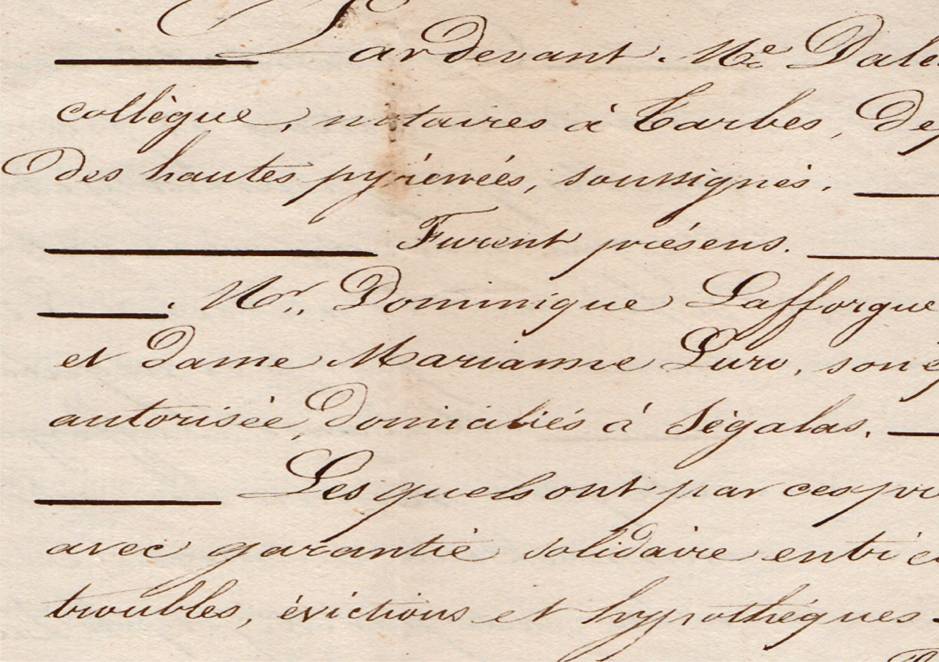 Pardevant Me Dale
collègue, notaires à Tarbes, Dep
Des hautes pyrénées, soussignés.
Furent présens.
Mr. Dominique Lafforgue
et Dame Marianne Luro, son é
autorisée, Domiciliés à Ségalas.
Lesquels ont par ces pr
avec garantie solidaire entr'e
troubles, évictions et hypothéques